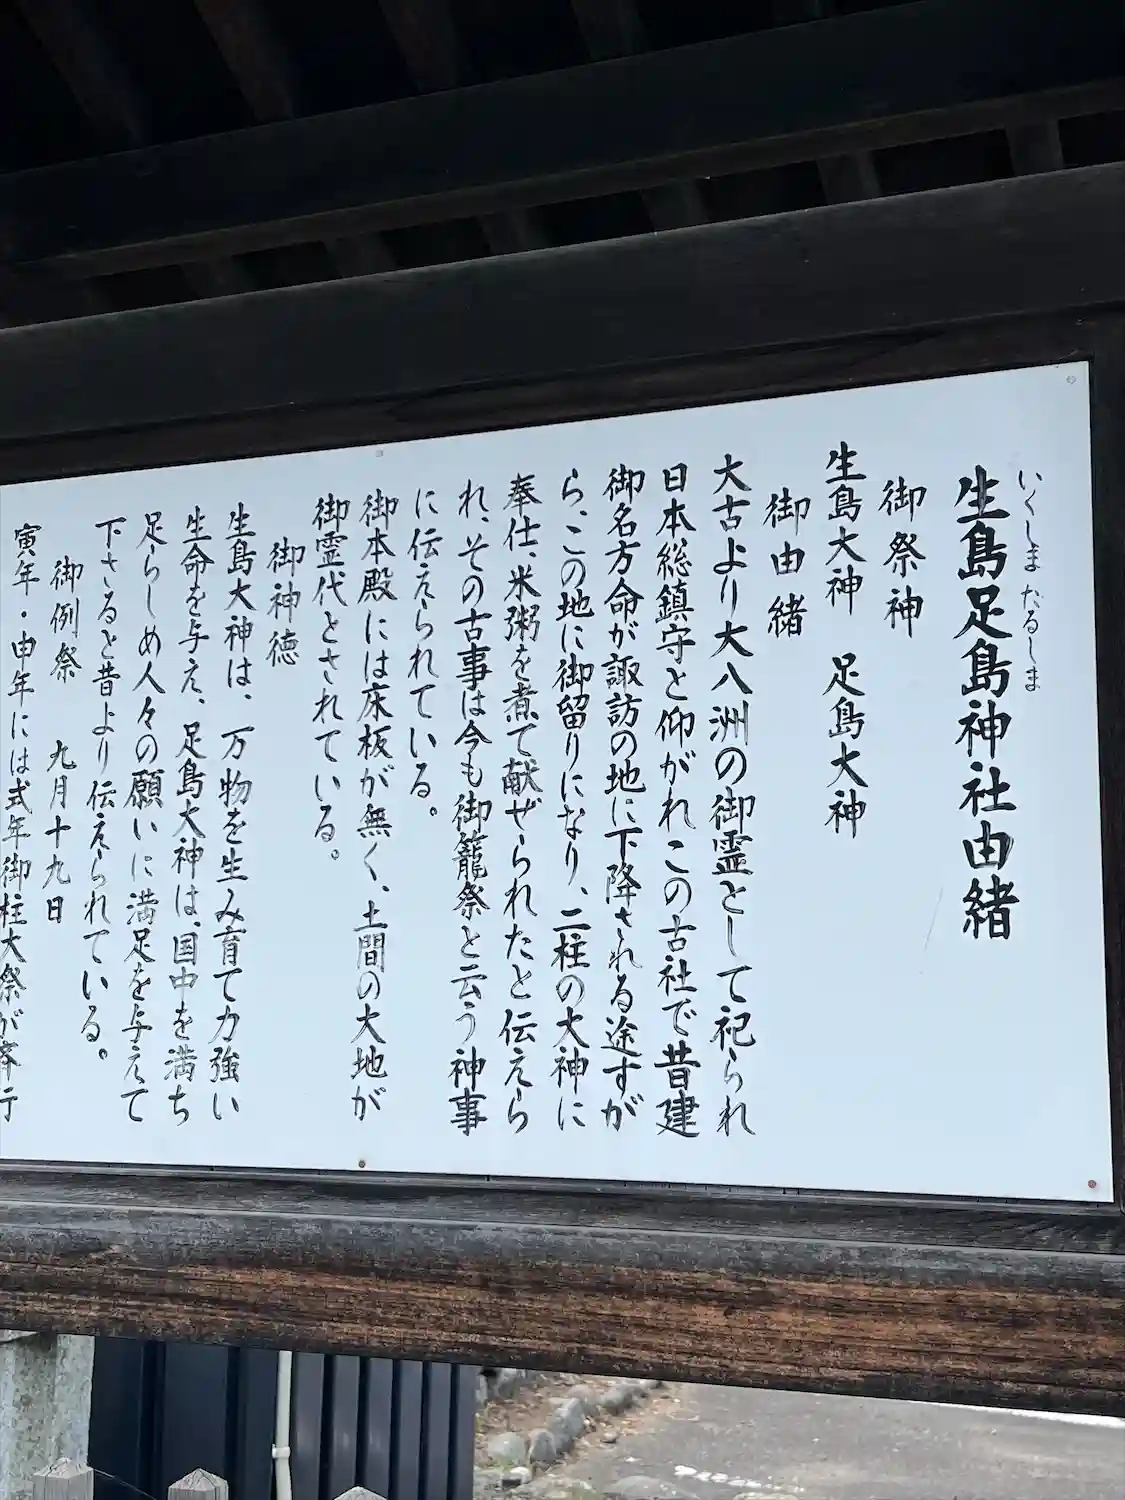 いくしま たるしま
生島足島神社由緒
御祭神
生島大神 足島大神
御由緒
大古より大八洲の御霊として祀られ
日本総鎮守と仰がれこの古社で昔建
御名方命が諏訪の地に下降される途すが
ら、この地に御留りになり、二柱の大神に
奉仕、米粥を煮て献ぜられたと伝えら
れ、その古事は今も御籠祭と云う神事
に伝えられている。
御本殿には床板が無く、土間の大地が
御霊代とされている。
御神徳
生島大神は、万物を生み育て力強い
生命を与え、足島大神は、国中を満ち
足らしめ人々の願いに満足を与えて
下さると昔より伝えられている。
御例祭 九月十九日
寅年・申年には式年御柱大祭が斉行